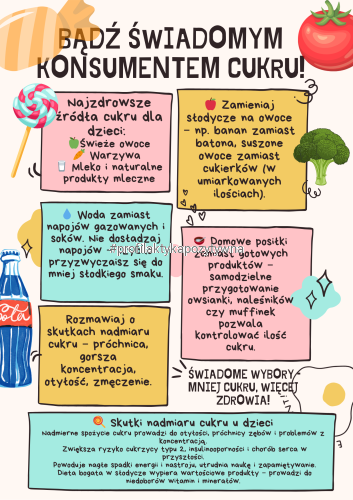 BĄDŹ ŚWIADOMYM
KONSUMENTEM CUKRU!
Najzdrowsze
źródła cukru dla
dzieci:
Świeże owoce
Warzywa
Mleko i naturalne
produkty mleczne
Zamieniaj
słodycze na owoce
– np. banan zamiast
batona, suszone
owoce zamiast
cukierków (w
umiarkowanych
ilościach).
Woda zamiast
napojów gazowanych i
soków. Nie dosładzaj
napojów –
przyzwyczaisz się do
mniej słodkiego smaku.
#profilaktykapozytywna
Domowe posiłki
zamiast gotowych
produktów –
samodzielne
przygotowanie
owsianki, naleśników
czy muffinek
pozwala
kontrolować ilość
cukru.
Cola
Rozmawiaj o
skutkach nadmiaru
cukru – próchnica,
gorsza
koncentracja,
otyłość, zmęczenie.
ŚWIADOME WYBORY -
MNIEJ CUKRU, WIĘCEJ
ZDROWIA!
Skutki nadmiaru cukru u dzieci
Nadmierne spożycie cukru prowadzi do otyłości, próchnicy zębów i problemów z
koncentracją.
Zwiększa ryzyko cukrzycy typu 2, insulinooporności i chorób serca w
przyszłości.
Powoduje nagłe spadki energii i nastroju, utrudnia naukę i zapamiętywanie.
Dieta bogata w słodycze wypiera wartościowe produkty – prowadzi do
niedoborów witamin i minerałów.